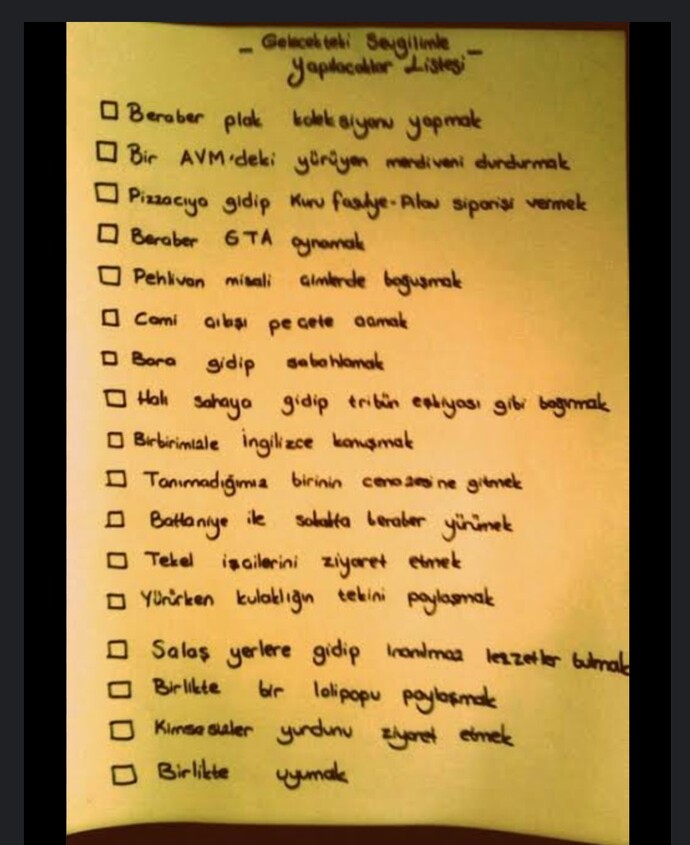 _ Gelecekteki Sevgilimle _
Yapılacaklar Listesi
Beraber plak koleksiyonu yapmak
Bir AVM'deki yürüyen merdiveni durdurmak
Pizzacıya gidip Kuru fasulye-Pilav siparişi vermek
Beraber GTA oynamak
Pehlivan misali çimlerde boğuşmak
Cami çıkışı peçete açmak
Bara gidip sabahlamak
Halı sahaya gidip tribün eşkıyası gibi bağırmak
Birbirimizle İngilizce konuşmak
Tanımadığımız birinin cenazesine gitmek
Battaniye ile sokakta beraber yürümek
Tekel işçilerini ziyaret etmek
Yürürken kulaklığın tekini paylaşmak
Salaş yerlere gidip inanılmaz lezzetler bulmak
Birlikte bir lolipopu paylaşmak
Kimsesizler yurdunu ziyaret etmek
Birlikte uyumak